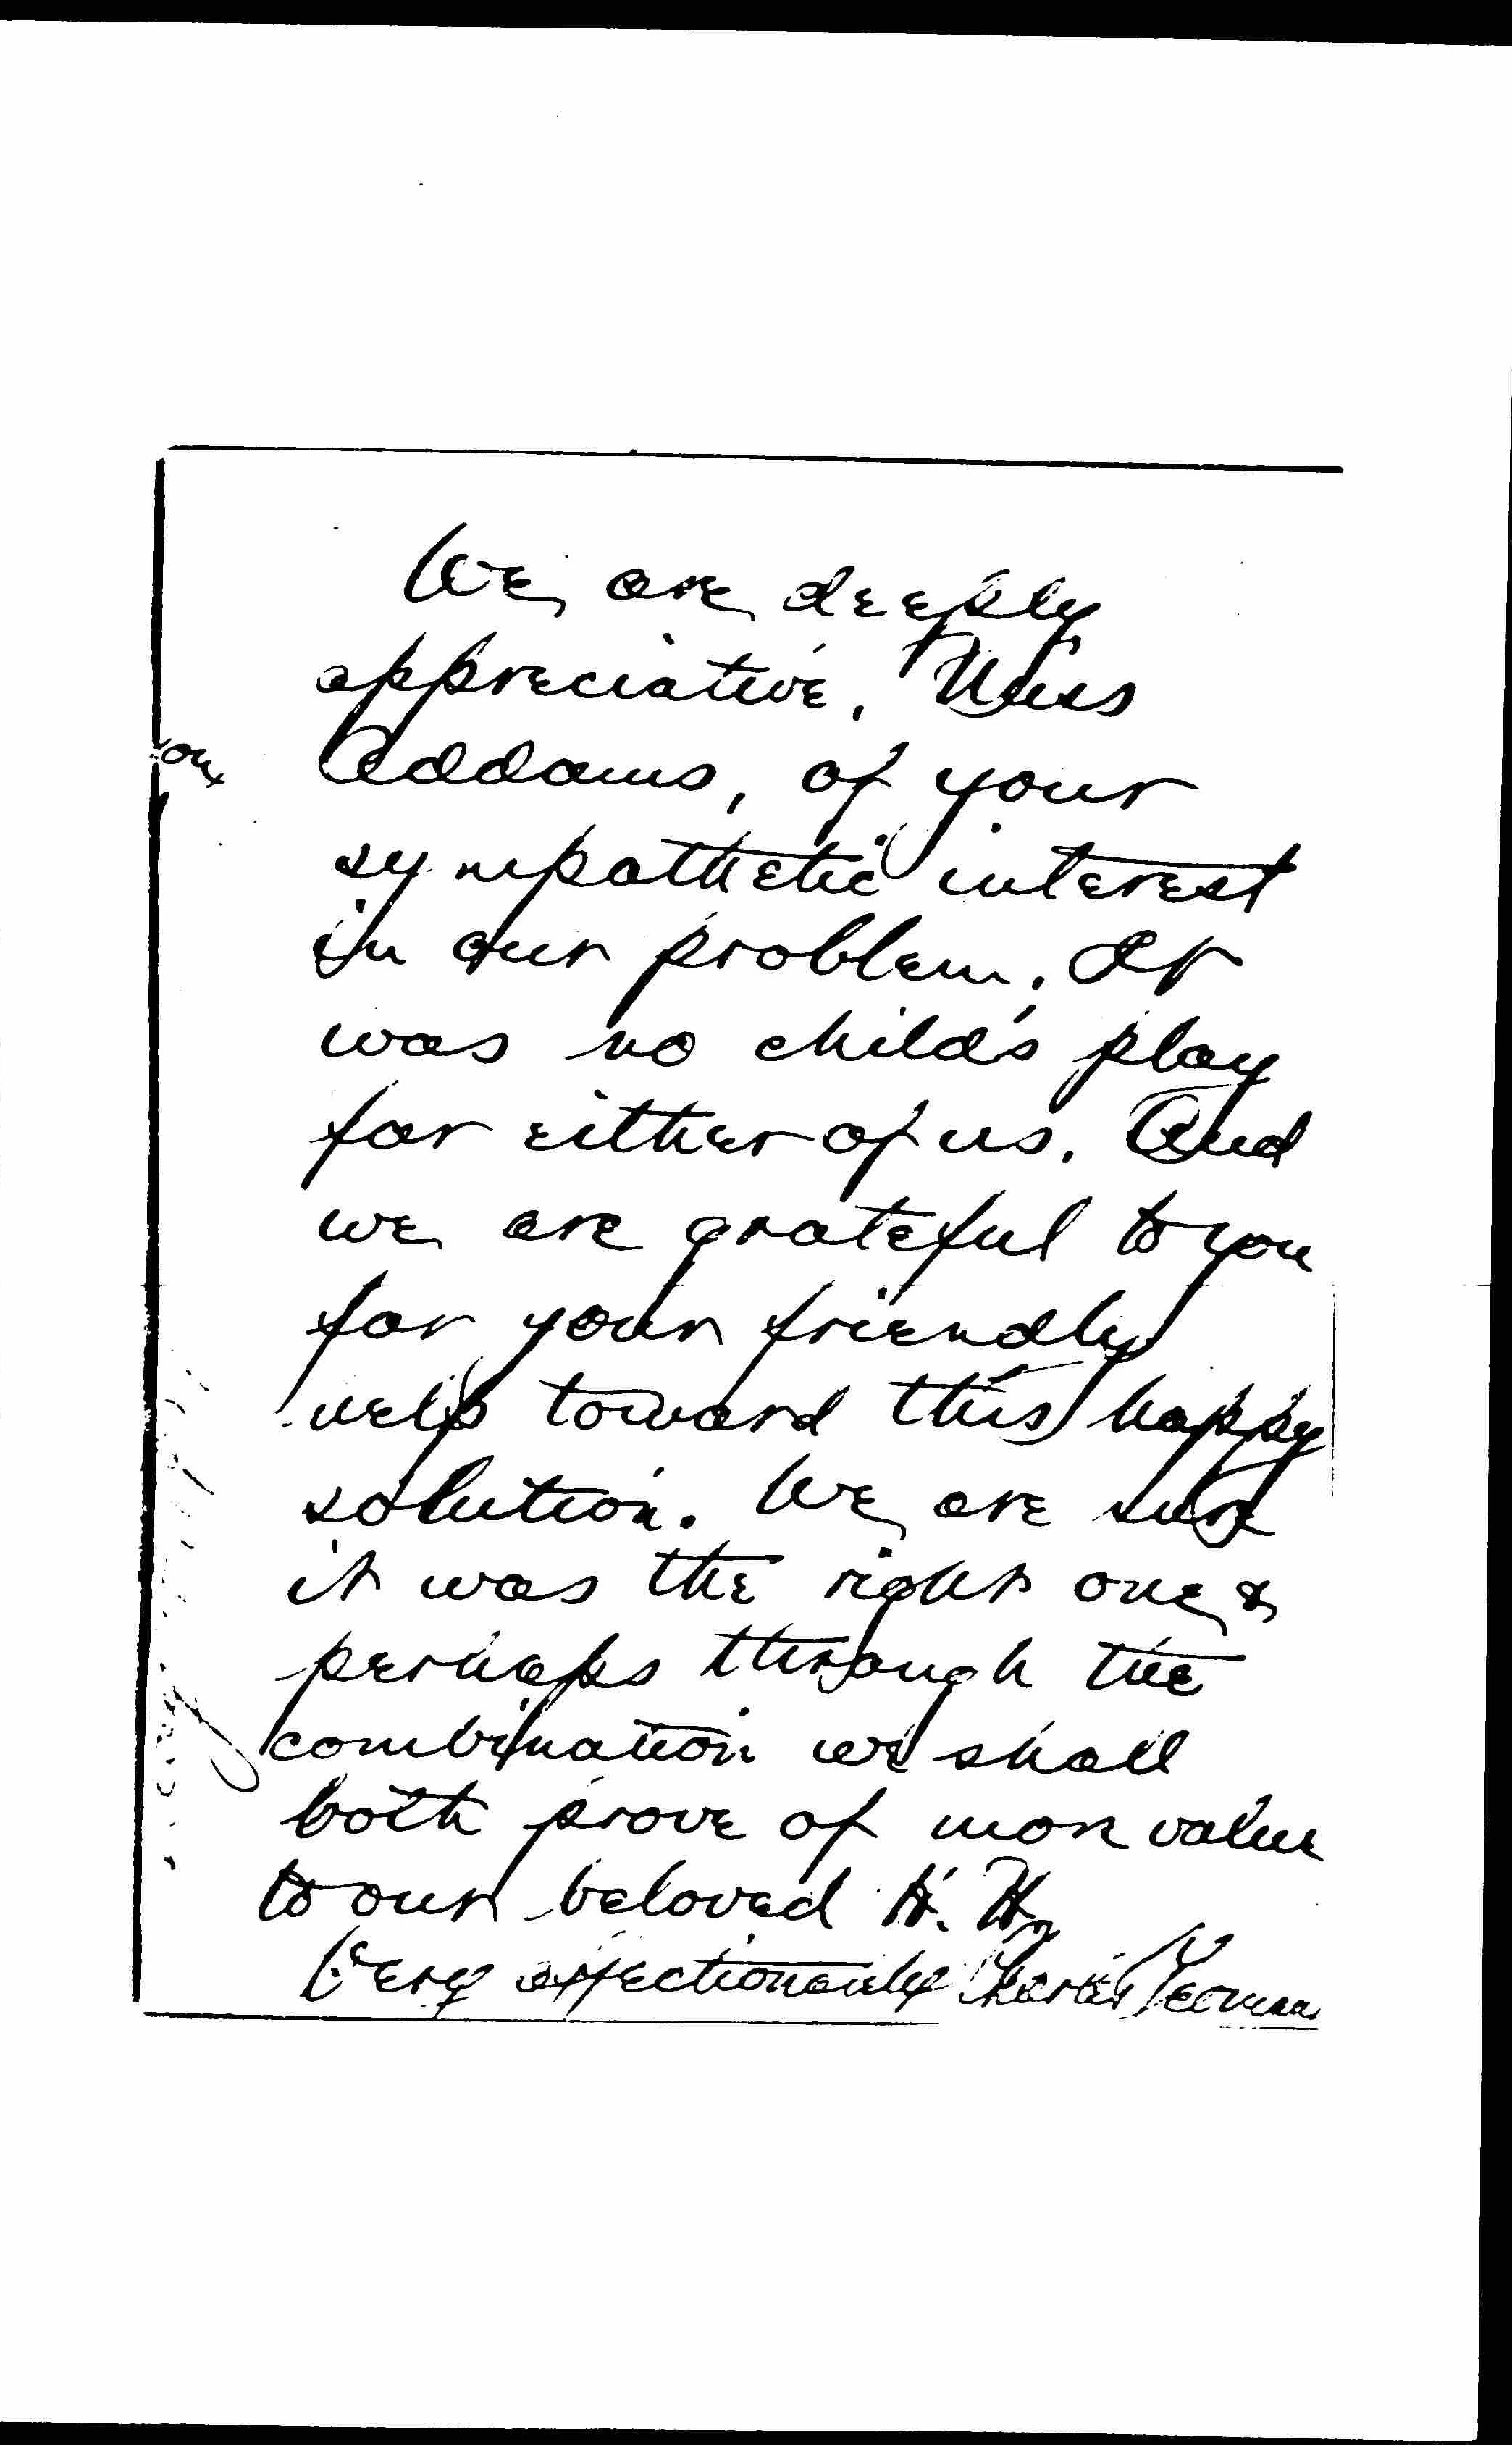 We are deeply
appreciative, Miss
Addams, of your
sympathetic interest
in our problem. It
was no child's play
for either of us. And
we are grateful to you
for your friendly
help toward this happy
solution. We are sure
it was the right one &
perhaps through the
combination we shall
both prove of more value
to our beloved H. H.
Very affectionately Charles Yeoman